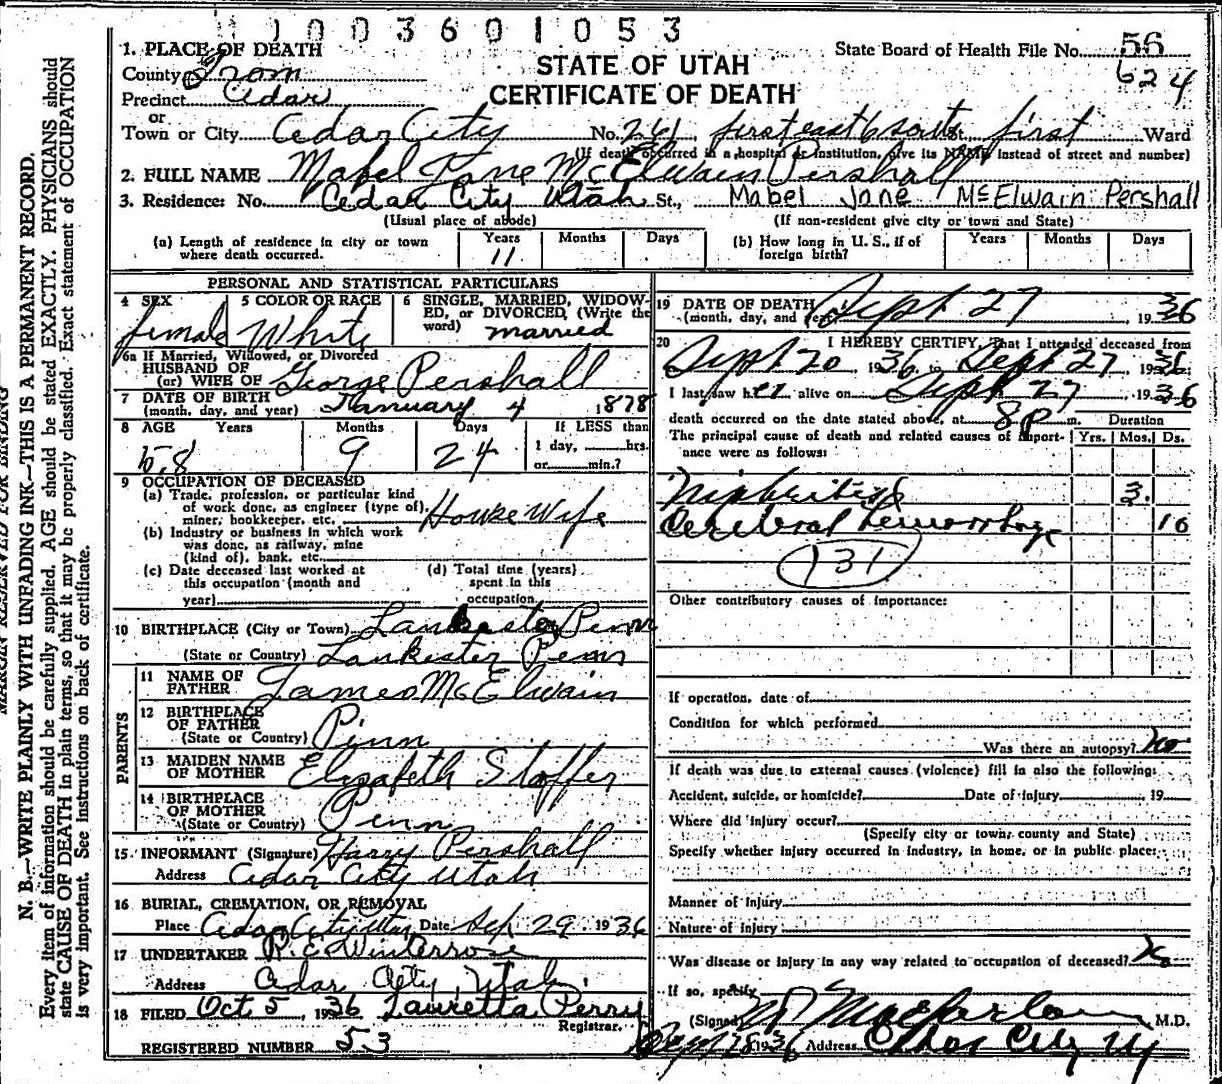 1003601053
1. PLACE OF DEATH
State Board of Health File No. 56
County Iron
STATE OF UTAH
624
Precinct Cedar
CERTIFICATE OF DEATH
or
Town or City Cedar City No. 261 first east 6 south St. first Ward
(If death occurred in a hospital or institution, give its NAME instead of street and number)
2. FULL NAME Mabel Jane McElwain Pershall
3. Residence: No. Cedar City Utah St., Mabel Jane McElwain Pershall
(Usual place of abode) (If non-resident give city or town and State)
(a) Length of residence in city or town where death occurred. Years 11 Months Days
(b) How long in U. S., if of foreign birth? Years Months Days
PERSONAL AND STATISTICAL PARTICULARS
4 SEX female
5 COLOR OR RACE White
6 SINGLE, MARRIED, WIDOWED, or DIVORCED, (Write the word) married
6a If Married, Widowed, or Divorced
HUSBAND OF
(or) WIFE OF George Pershall
7 DATE OF BIRTH
(month, day, and year) January 4 1878
8 AGE Years Months Days If LESS than
58 9 24 1 day, hrs.
or min.?
9 OCCUPATION OF DECEASED
(a) Trade, profession, or particular kind
of work done, as engineer (type of),
miner, bookkeeper, etc. House Wife
(b) Industry or business in which work
was done, as railway, mine
(kind of), bank, etc.
(c) Date deceased last worked at
this occupation (month and
year)
(d) Total time (years)
spent in this
occupation
10 BIRTHPLACE (City or Town) Lankester Penn
(State or Country) Lankester Penn
PARENTS
11 NAME OF
FATHER James McElwain
12 BIRTHPLACE
OF FATHER
(State or Country) Pinn
13 MAIDEN NAME
OF MOTHER Elizabeth Stoffer
14 BIRTHPLACE
OF MOTHER
(State or Country) Penn
15 INFORMANT (Signature) Harry Pershall
Address Cedar City Utah
16 BURIAL, CREMATION, OR REMOVAL
Place Cedar City Utah Date Sep 29 1936
17 UNDERTAKER R. E. Winterrose
Address Cedar City, Utah
18 FILED Oct 5, 1936 Lauretta Perry
Registrar.
REGISTERED NUMBER 53
19 DATE OF DEATH
(month, day, and year) Sept 27, 1936
20 I HEREBY CERTIFY, That I attended deceased from
Sept 20, 1936, to Sept 27 1936
I last saw her alive on Sept 27, 1936
death occurred on the date stated above, at 8 p m. Duration
The principal cause of death and related causes of importance were as follows: Yrs. Mos. Ds.
3.
Cerebral hemorrhage 10
131
Other contributory causes of importance:
If operation, date of
Condition for which performed
Was there an autopsy? no
If death was due to external causes (violence) fill in also the following:
Accident, suicide, or homicide? Date of injury , 19
Where did injury occur?
(Specify city or town, county and State)
Specify whether injury occurred in industry, in home, or in public place:
Manner of injury
Nature of injury
Was disease or injury in any way related to occupation of deceased? No
If so, specify
(Signed) Macfarlane M.D.
Sept 28 1936 Address Cedar City Ut
MARGIN RESERVED FOR BINDING
N. B.—WRITE PLAINLY WITH UNFADING INK—THIS IS A PERMANENT RECORD.
Every item of information should be carefully supplied. AGE should be stated EXACTLY. PHYSICIANS should
state CAUSE OF DEATH in plain terms, so that it may be properly classified. Exact statement of OCCUPATION
is very important. See instructions on back of certificate.